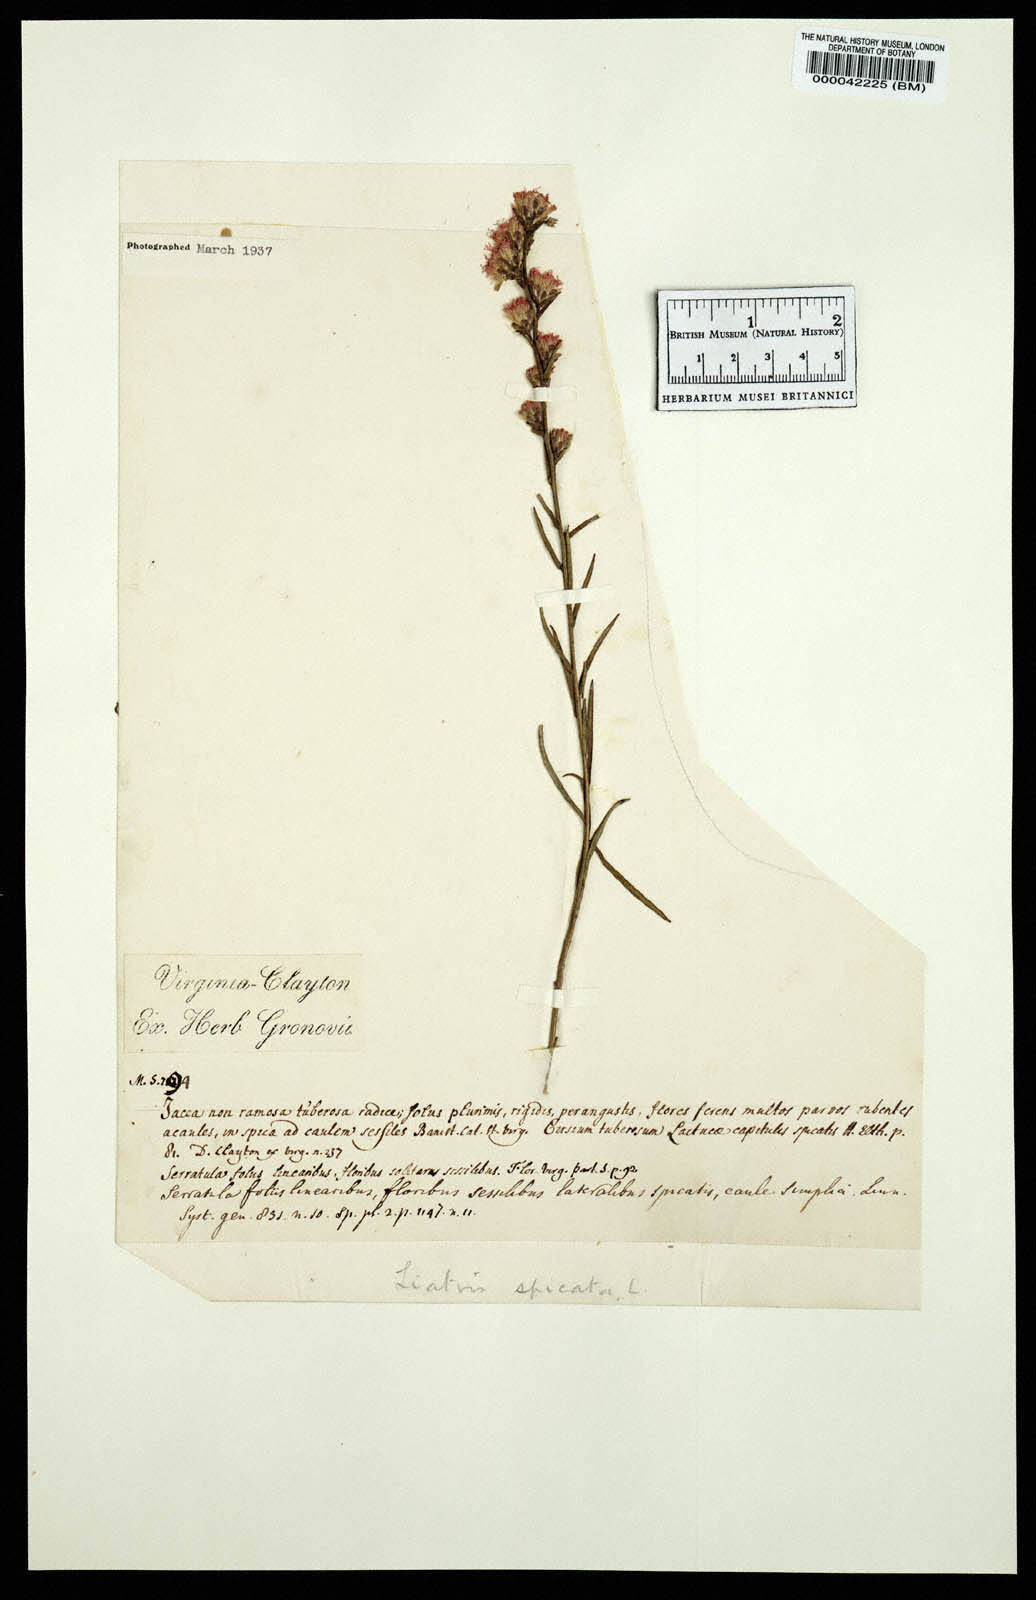 THE NATURAL HISTORY MUSEUM, LONDON
DEPARTMENT OF BOTANY
000042225 (BM)
Photographed March 1937
1 2
BRITISH MUSEUM (NATURAL HISTORY)
1 2 3 4 5
HERBARIUM MUSEI BRITANNICI
Virginia-Clayton
Ex. Herb Gronovii
M. S.
Jacea non ramosa tuberosa radice; foliis plurimis, rigidis, perangustis, flores ferens multos parvos rubentes
acaules, in spica ad caulem sessiles Banist. Cat. St. Virg. Cirsium tuberosum Lactucæ capitulis spicatis H. Elth. p.
81. D. Clayton ex Virg. n. 237
Serratula foliis linearibus, floribus solitariis sessilibus. Flor. Virg. part. 1. p. 92
Serratula foliis linearibus, floribus sessilibus lateralibus spicatis, caule simplici. Linn.
Syst. gen. 831. n. 10. Sp. pl. 2. p. 1147. n. 11.
Liatris spicata, L.